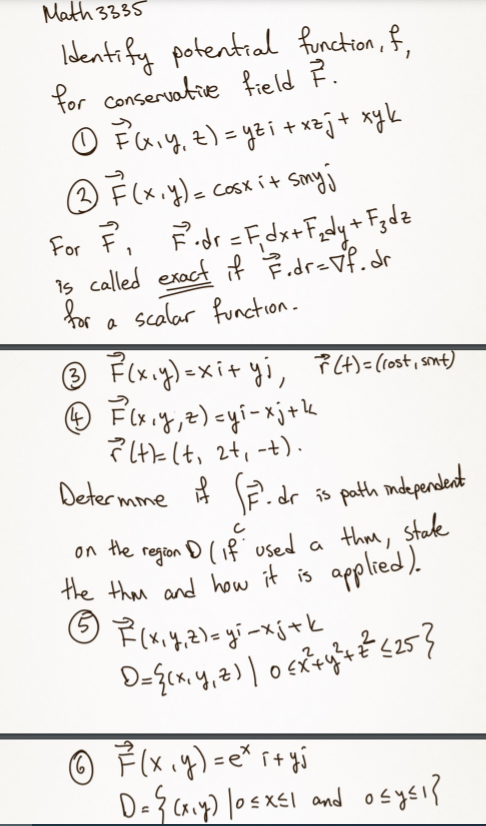 Math 3335
Identify potential function, f,
for conservative field F⃗.
① F⃗(x,y,z) = yz i + xz j + xy k
② F⃗(x,y) = cosx i + siny j
For F⃗, F⃗.dr = F₁dx+F₂dy+F₃dz
is called exact if F⃗.dr=∇f.dr
for a scalar function.
③ F⃗(x,y)=xi+yj, r⃗(t)=(cost, sint)
④ F⃗(x,y,z)=yi-xj+k
r⃗(t)=(t, 2t, -t).
Determine if ∫_C F⃗.dr is path independent
on the region D (if used a thm, state
the thm and how it is applied).
⑤ F⃗(x,y,z)=yi-xj+k
D={(x,y,z) | 0≤x²+y²+z²≤25}
⑥ F⃗(x,y)=eˣ i+yj
D={(x,y) | 0≤x≤1 and 0≤y≤1}